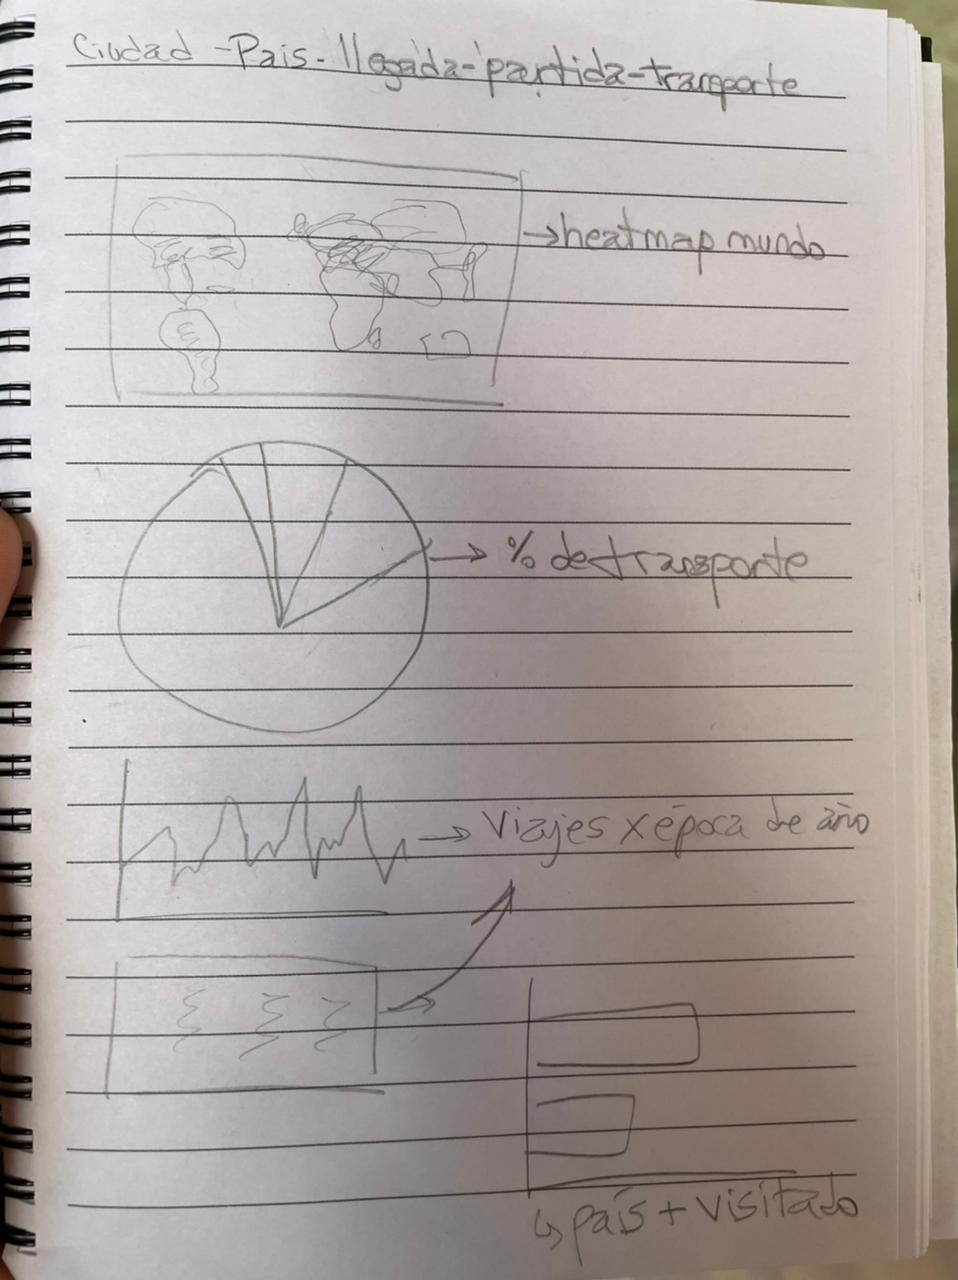 Ciudad - País - llegada - partida - transporte
→ heatmap mundo
→ % de transporte
→ Viajes x época de año
↳ país + visitado